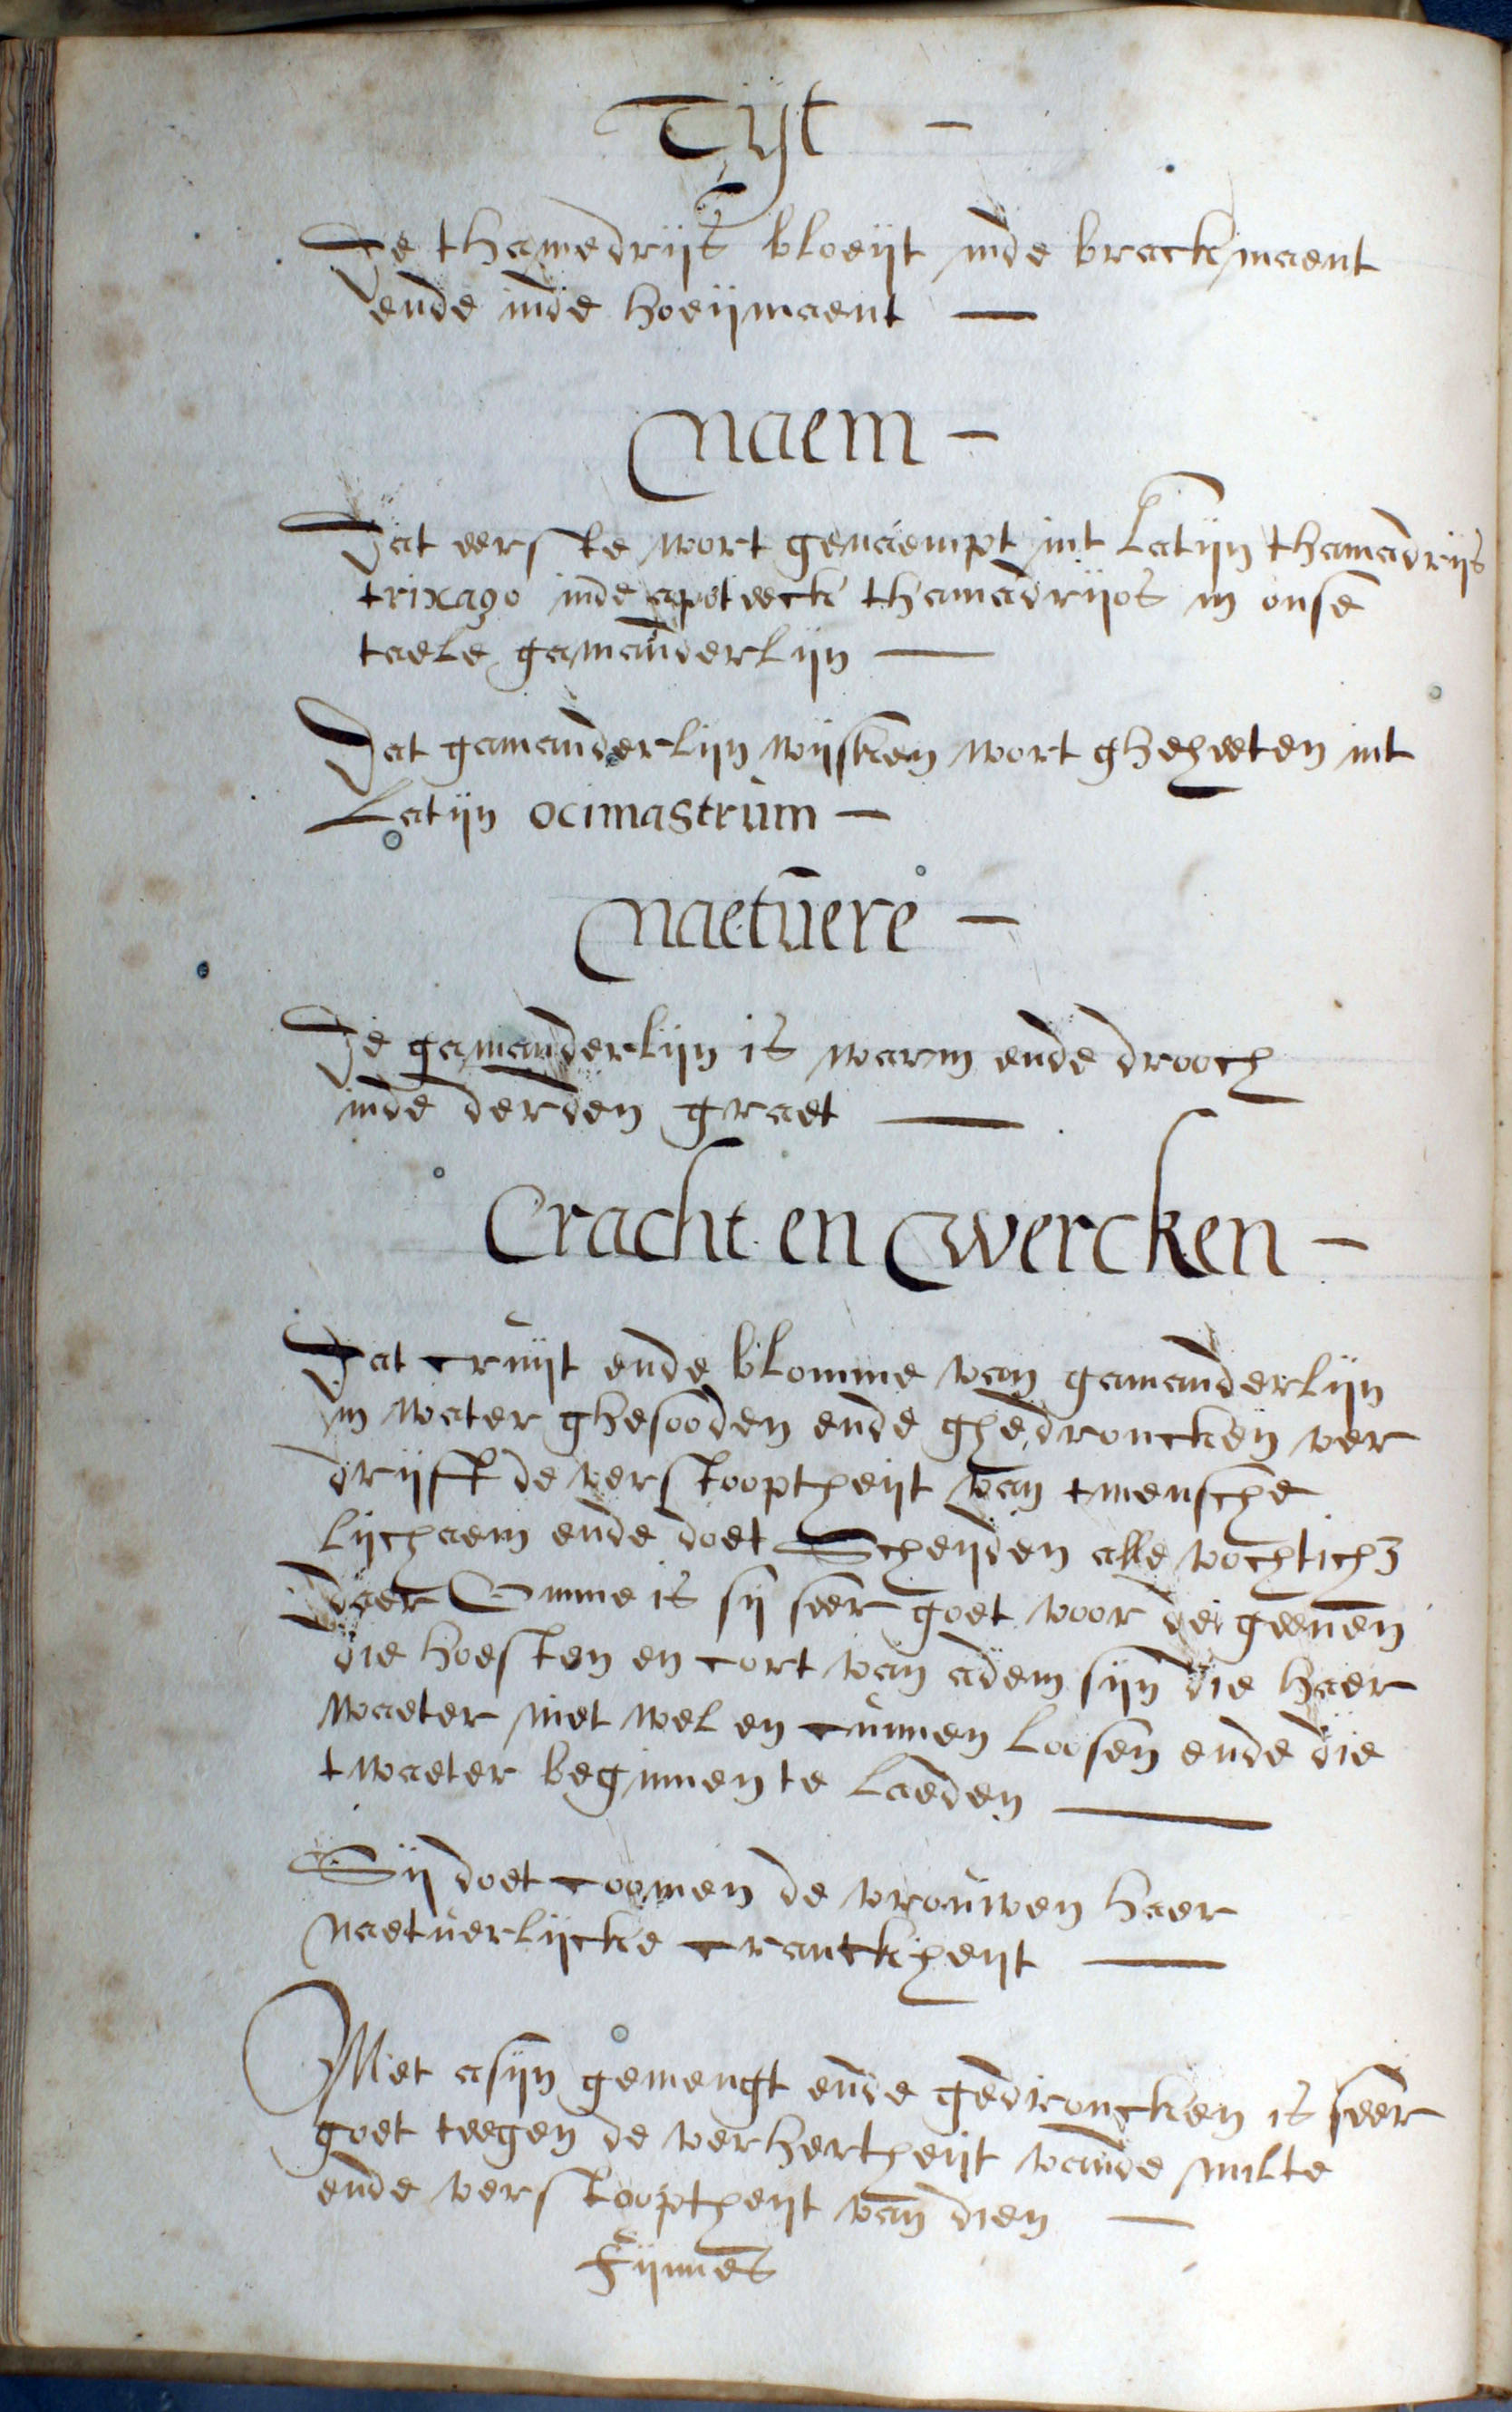 Tijt —
De thamedrijs bloeijt inde brackmaent
ende inde hoeijmaent —
Naem —
Dat eerste wort genaempt int Latijn thamadrijs
trixago inde apoteeck thamadrijos in onse
taele gamanderlijn —
Dat gamanderlijn wijfken wort gheheeten int
Latijn ocimastrum —
Naetuere —
De gamanderlijn is warm ende drooch
inde derden graet —
Cracht en Wercken —
Dat cruijt ende blomme van gamanderlijn
in water ghesooden ende ghedroncken ver
drijft de verstooptheijt van tmensche
lijchaem ende doet Scheijden alle vochtich3
daer Omme is sij seer goet voor de geenen
die hoesten en cort van adem sijn die haer
waeter niet wel en cunnen loosen ende die
twaeter beginnen te laeden —
Sij doet coomen de vrouwen haer
naetuerlijcke cranckheijt —
Met asijn gemengt ende gedroncken is seer
goet teegen de verhertheijt vande milte
ende verstooptheijt van dien —
Fijnnes